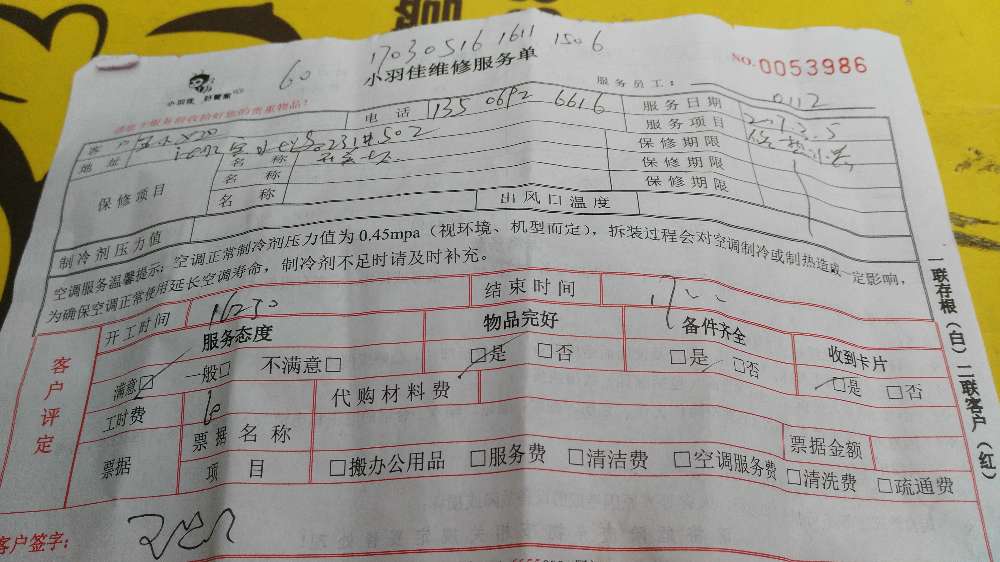 17030516 1611 1506
60
小羽佳维修服务单
NO.0053986
小羽佳 好管家
服务员工： 0112
请您于服务前收拾好您的贵重物品！
客户 电话 135 0692 6616 服务日期 2017.3.5
地址 服务项目
保修项目 名称 保修期限
名称 保修期限
名称 保修期限
制冷剂压力值 出风口温度
空调服务温馨提示：空调正常制冷剂压力值为0.45mpa（视环境、机型而定），拆装过程会对空调制冷或制热造成一定影响，
为确保空调正常使用延长空调寿命，制冷剂不足时请及时补充。
开工时间 1630 结束时间 1700
客户评定
服务态度 物品完好 备件齐全 收到卡片
满意□ 一般□ 不满意□ □是 □否 □是 □否 □是 □否
工时费 60 代购材料费
票据 票据名称 票据金额
项目 □搬办公用品 □服务费 □清洁费 □空调服务费 □清洗费 □疏通费
客户签字：
一联存根（白）二联客户（红）